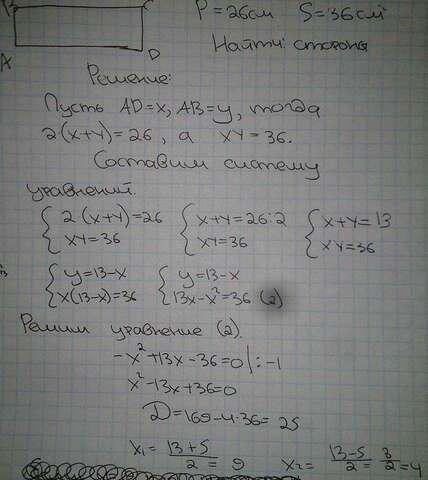 B C
P = 26см S = 36 см²
A D
Найти: стороны
Решение:
Пусть AD = x, AB = y, тогда
2(x+y) = 26, а xy = 36.
Составим систему
уравнений.
{ 2(x+y) = 26 { x+y = 26:2 { x+y = 13
{ xy = 36 { xy = 36 { xy = 36
{ y = 13-x { y = 13-x
{ x(13-x) = 36 { 13x-x² = 36 (2)
Решим уравнение (2).
-x²+13x-36=0 |:-1
x²-13x+36=0
D = 169-4·36 = 25
x₁ = (13+5)/2 = 9 x₂ = (13-5)/2 = 8/2 = 4